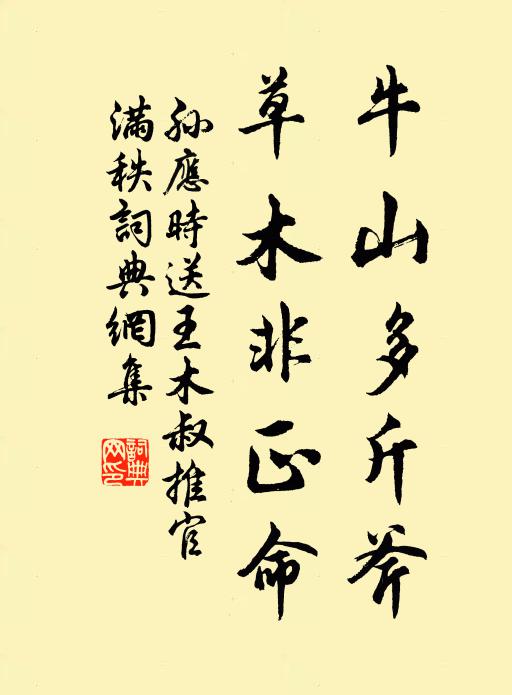 牛山多斤斧
草木非正命
孫應時送王木叔推官
滿秩詞典網集
詞典網印